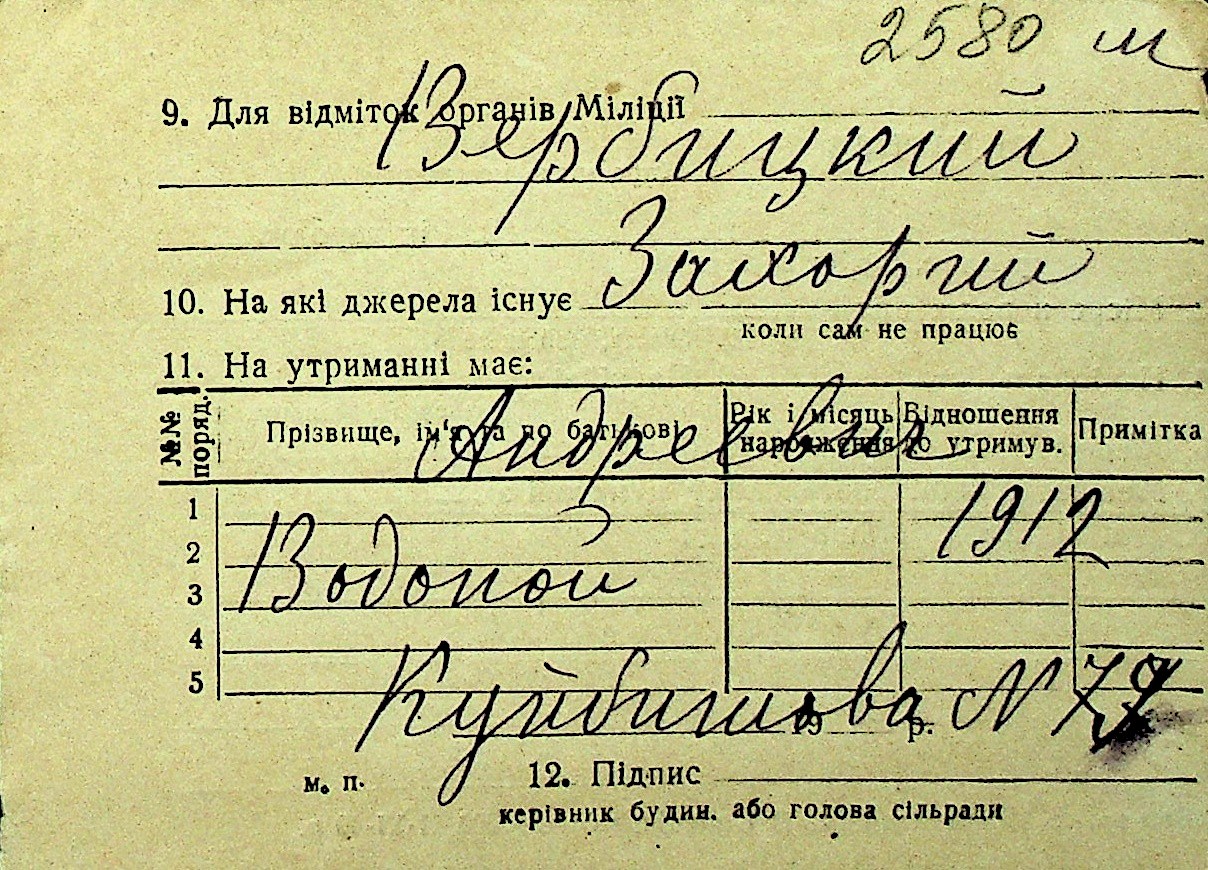 2580 м
9. Для відміток органів Міліції
Вербицкий
Захорий
10. На які джерела існує
коли сам не працює
11. На утриманні має:
№№ поряд. Прізвище, ім'я та по батькові Рік і місяць народження Відношення до утримув. Примітка
Андреевич
1
1912
2
Водопой
3
4
5
Куйбишова N 79
19 р.
м. п. 12. Підпис
керівник будин. або голова сільради